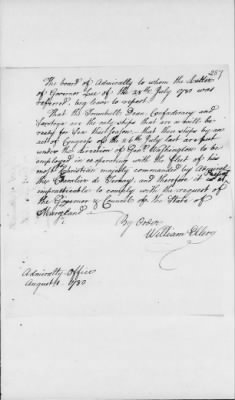 257
The board of Admiralty to whom the Letter
of Governor Lee of the 28th July 1780 was
referred, beg leave to report.
That the Trumbull Dean, Confederacy and
Saratoga are the only ships that are or will be
ready for Sea this season. that these ships by an
act of Congress of the 26th July last are placed
under the direction of Genl. Washington to be
employed in co-operating with the fleet of his
most Christian majesty commanded by
le Chevalier de Ternay, and therefore it is
impracticable to comply with the request of
the Governor & Council of the State of
Maryland
By Order
William Ellery
Admiralty Office
August 1780